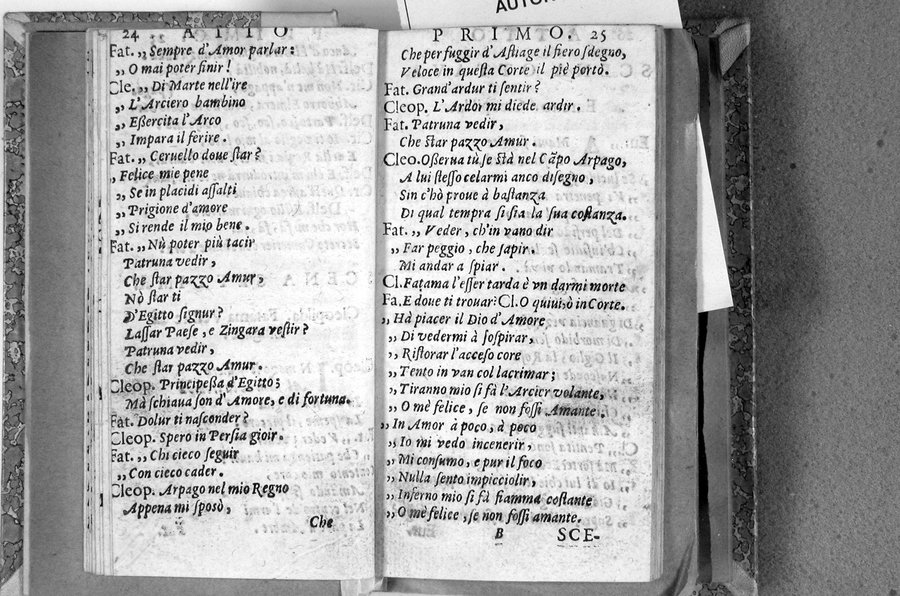 AUTOR
24 ATTO
Fat. ,, Sempre d'Amor parlar:
,, O mai poter finir!
Cle. ,, Di Marte nell'ire
,, L'Arciero bambino
,, Eßercita l'Arco
,, Impara il ferire.
Fat. ,, Ceruello doue ſtar?
, Felice mie pene
,, Se in placidi aſſalti
,, Prigione d'amore
,, Si rende il mio bene.
Fat. ,, Nù poter più tacir
Patruna vedir,
Che ſtar pazzo Amur,
Nò ſtar ti
D'Egitto ſignur?
Laſſar Paeſe, e Zingara veſtir?
Patruna vedir,
Che ſtar pazzo Amur.
Cleop. Principeßa d'Egitto;
Mà ſchiaua ſon d'Amore, e di fortuna.
Fat. Dolur ti naſconder?
Cleop. Spero in Perſia gioir.
Fat. ,, Chi cieco ſeguir
,, Con cieco cader.
Cleop. Arpago nel mio Regno
Appena mi sposò,
Che
PRIMO. 25
Che per fuggir d'Aſtiage il fiero ſdegno,
Veloce in queſta Corte il piè portò.
Fat. Grand'ardur ti ſentir?
Cleop. L'Ardor mi diede ardir.
Fat. Patruna vedir,
Che ſtar pazzo Amur.
Cleo. Oſſerua tù, ſe ſtà nel Cāpo Arpago,
A lui ſteſſo celarmi anco diſegno,
Sin c'hò proue à baſtanza
Di qual tempra ſi ſia la ſua coſtanza.
Fat. ,, Veder, ch'in vano dir
,, Far peggio, che ſapir.
Mi andar a ſpiar.
Cl. Fatama l'eſſer tarda è vn darmi morte
Fa. E doue ti trouar? Cl. O quiui, ò in Corte.
,, Hà piacer il Dio d'Amore
,, Di vedermi à ſoſpirar,
,, Riſtorar l'acceſo core
,, Tento in van col lacrimar;
,, Tiranno mio ſi fà l'Arcier volante,
,, O mè felice, ſe non foſſi Amante.
,, In Amor à poco, à poco
,, Io mi vedo incenerir,
,, Mi conſumo, e pur il foco
,, Nulla ſento impicciolir,
,, Inferno mio ſi fà fiamma coſtante
,, O mè felice, ſe non foſſi amante.
B SCE-